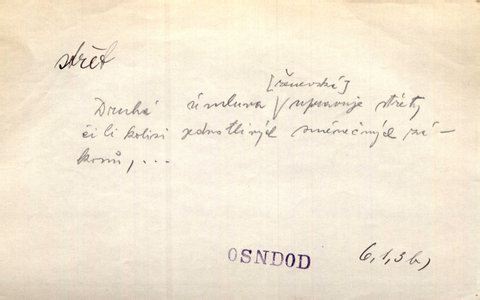 střet
[ženevská]
Druhá úmluva / upravuje střety
či li kolisi jednotlivých směnečných zá-
konů, ...
OSNDOD 6,1,3b)